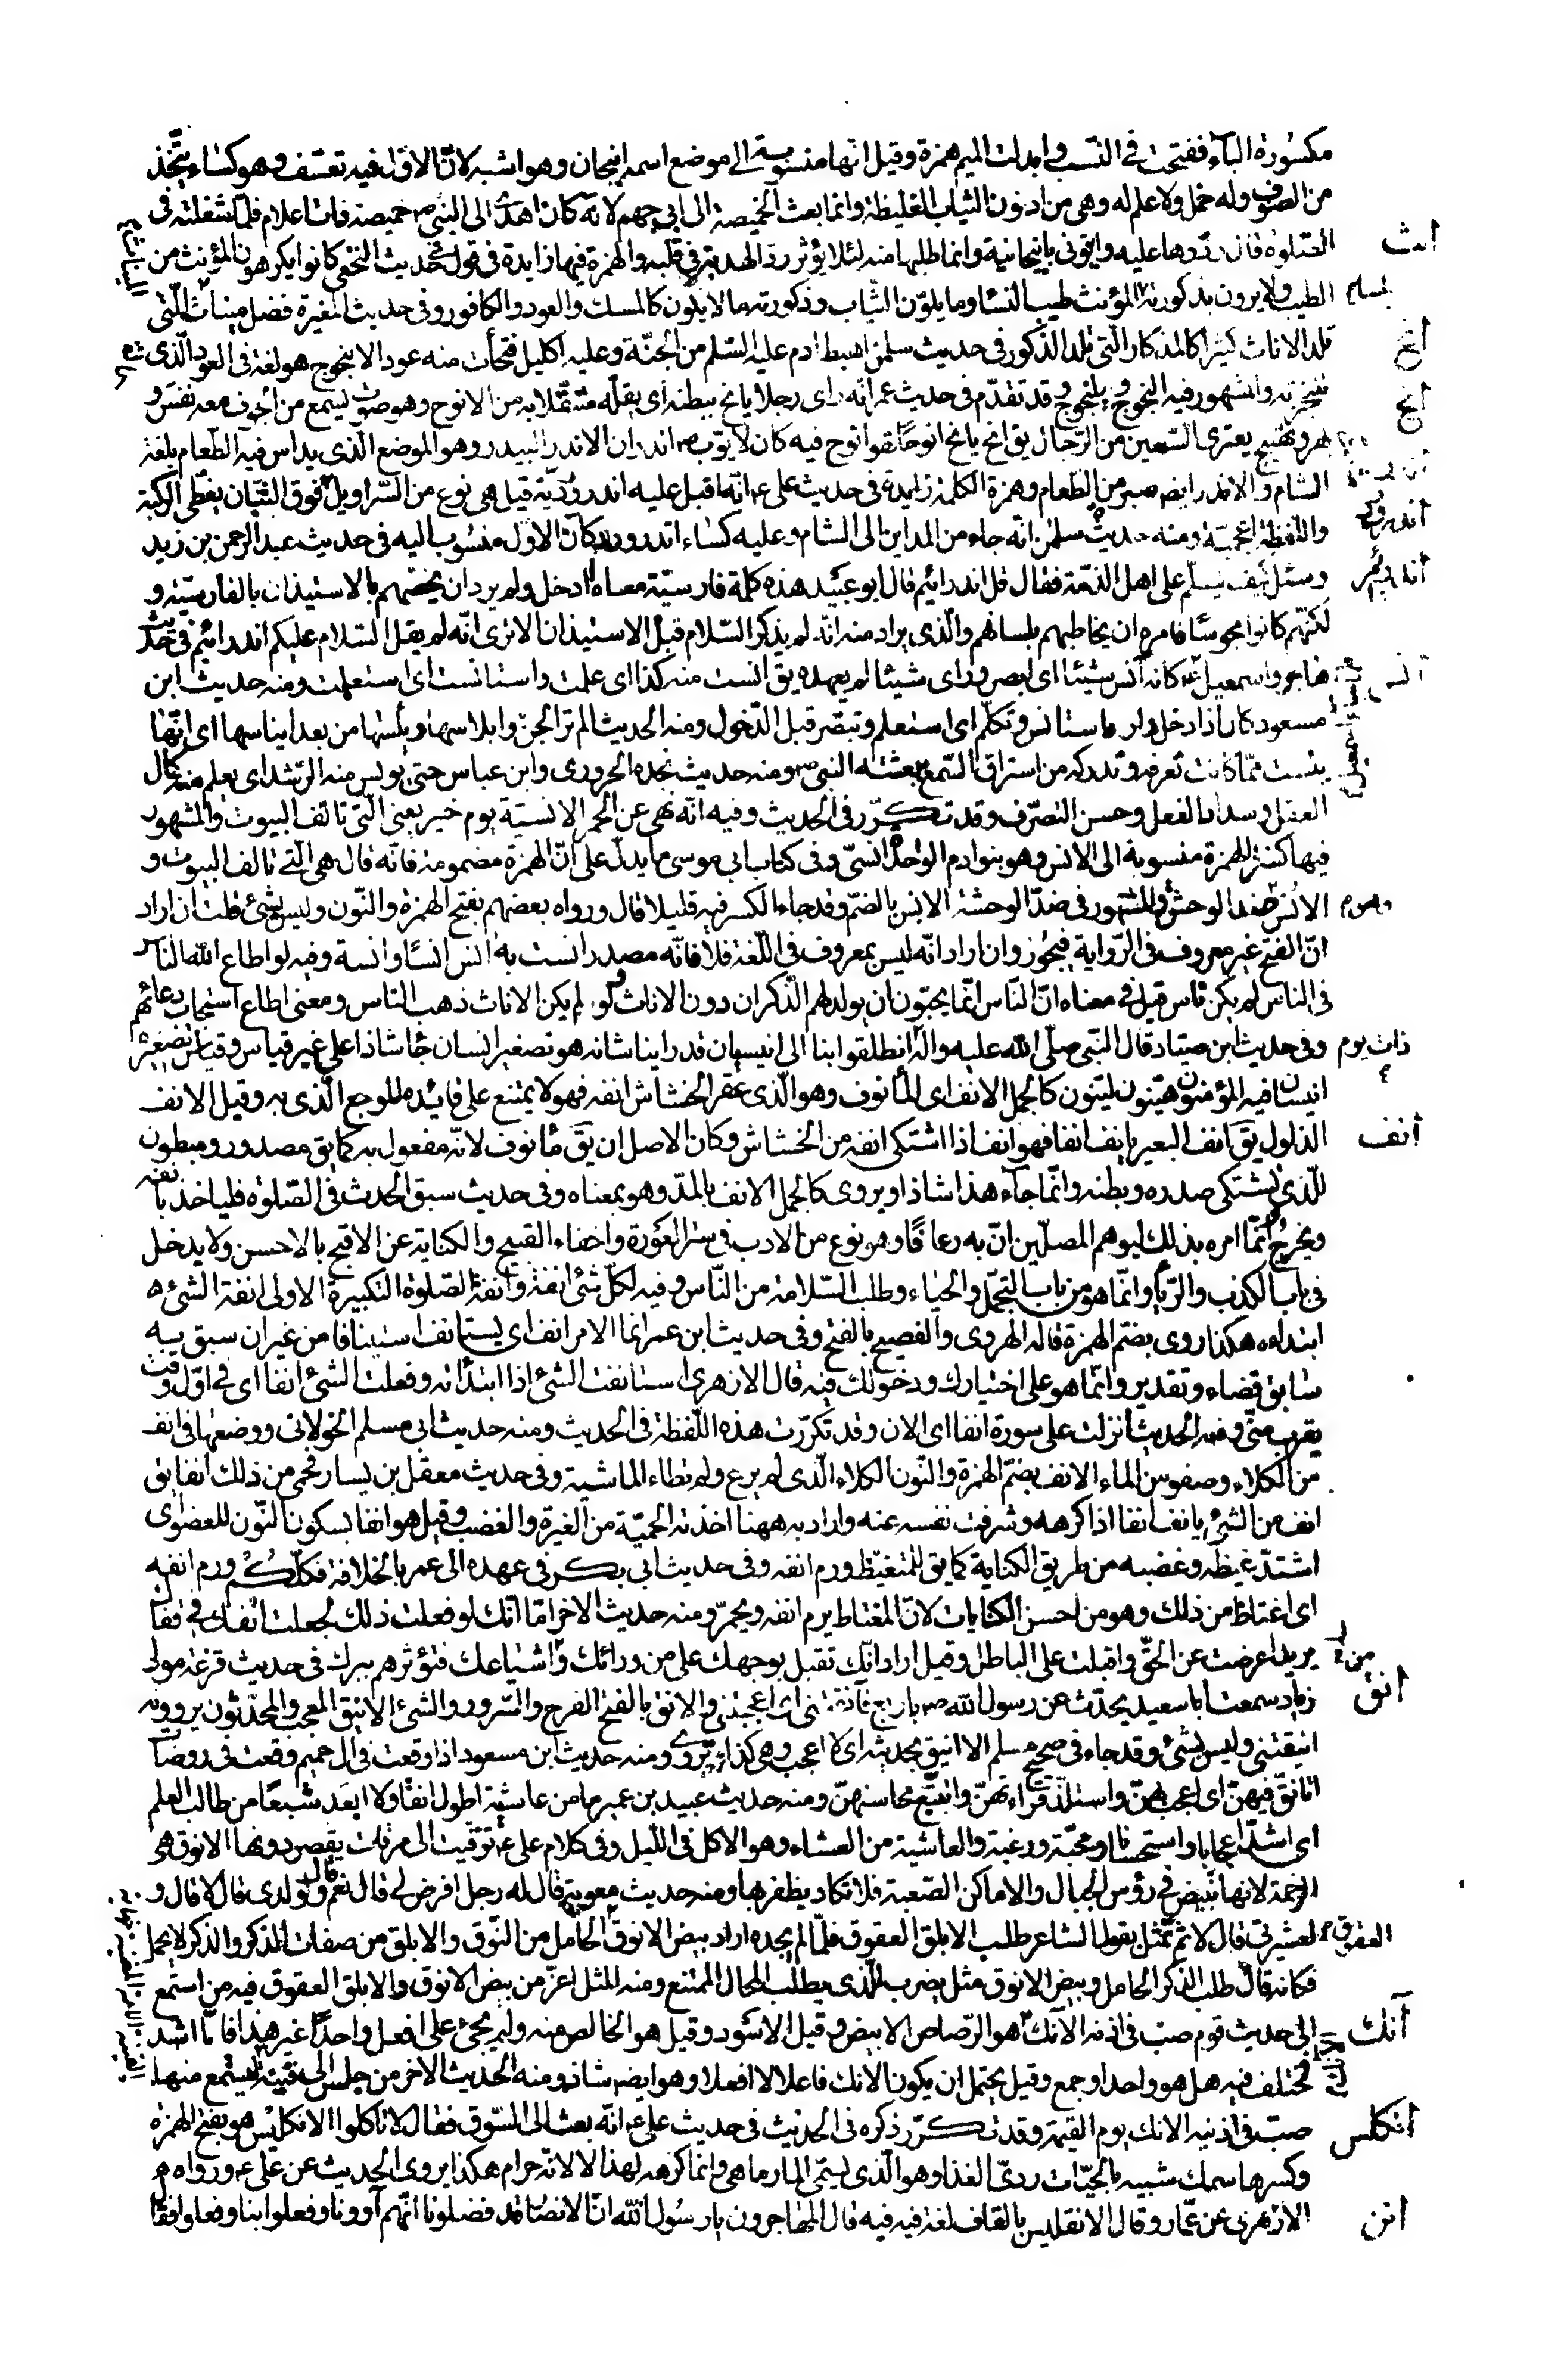 مكسورة الباء ففتحت في النسب وابدلت الميم همزة وقيل انها منسوبة الى موضع اسمه انبجان وهو اشبه لان الاول فيه تعسف وهو كساء يتخذ
من الصوف وله خمل ولا علم له وهى من ادون الثياب الغليظة وانما بعث الخميصة الى ابى جهم لانه كان اهدى الى النبي ص خميصة ذات اعلام فلما شغلته فى
الصلوة قال ردوها عليه وايتونى بانبجانية وانما طلبها منه لئلا يؤثر رد الهدية في قلبه والهمزة فيها زايدة فى قول في حديث النخعى كانوا يكرهون المؤنث من
انث
الطيب ولا يرون بذكورته المؤنث طيب النساء وما يلون الثياب وذكورته ما لا يلون كالمسك والعود والكافور وفى حديث المغيرة فضل ميناث التى
تلد الاناث كثيرا كالمذكار التى تلد الذكور فى حديث سلمن اهبط ادم عليه السلم من الجنة وعليه اكليل فتحات منه عود الانجوج هو لغة فى العود الذى
يتبخر به والمشهور فيه النجوج ويلنجوج وقد تقدم فى حديث عمر انه راى رجلا يانح ببطنه اى يقله مثقلا به من الانوح وهو صوت يسمع من الجوف معه نفس و
انح
بهر ونهيج يعترى السمين من الرجال يق انح يانح انوحا فهو انوح فيه كان لايوب ص اندران الاندر البيدر وهو الموضع الذى يداس فيه الطعام بلغة
الشام والاندر ايضه صبر من الطعام وهمزة الكلمة زايدة فى حديث على ع انه اقبل عليه اندروردية قيل هى نوع من السراويل فوق التبان يغطى الركبة
واللفظة اعجمية ومنه حديث سلمن انه جاء من المداين الى الشام وعليه كساء اندرورد كان الاول منسوب اليه فى حديث عبد الرحمن بن زيد
اندرورد
وسئل كيف يسلم على اهل الذمة فقال قل اندرائيم قال ابو عبيد هذه كلمة فارسية معناه ادخل ولم يرد ان يخصهم بالاستيذان بالفارسية و
اندرائيم
لكنهم كانوا مجوسا فامره ان يخاطبهم بلسانهم والذى يراد منه انه لم يذكر السلام قبل الاستيذان الا ترى انه لم يقل السلام عليكم اندرائيم فى حديث
هاجر واسمعيل ع كانه انس شيئا اى ابصر وراى شيئا لم يعهده يق انست منه كذا اى علمت واستانست اى استعلمت ومنه حديث ابن
انس
مسعود كان اذا دخل داره استانس وتكلم اى استعلم وتبصر قبل الدخول ومنه الحديث الم تر الجن وابلاسها وياسها من بعد ايناسها اى انها
يئست مما كانت تعرفه وتدركه من استراق السمع ببعثة النبي ص ومنه حديث نجدة الحرورى وابن عباس حتى يونس منه الرشد اى يعلم منه كمال
العقل وسداد الفعل وحسن التصرف وقد تكرر فى الحديث وفيه انه نهى عن الحمر الانسية يوم خيبر يعنى التى تالف البيوت والمشهور
فيها كسر الهمزة منسوبة الى الانس وهو بنو ادم الواحد انسى وفى كتاب ابى موسى ما يدل على ان الهمزة مضمومة فانه قال هى التى تالف البيوت و
الانس ضد الوحش والمشهور فى ضد الوحشة الانس بالضم وقد جاء الكسر فيه قليلا قال ورواه بعضهم بفتح الهمزة والنون وليس بشئ قلت ان اراد
ان الفتح غير معروف فى الرواية فيجوز وان اراد انه ليس بمعروف فى اللغة فلا فانه مصدر انست به انس انسا وانسة وفيه لو اطاع الله الناس
فى الناس لم يكن ناس قيل فى معناه ان الناس انما يحبون ان يولد لهم الذكران دون الاناث ولو لم يكن الاناث ذهب الناس ومعنى اطاع استجاب دعائهم
وفى حديث ابن صياد قال النبي صلى الله عليه واله انطلقوا بنا الى انيسيان قد راينا شانه هو تصغير انسان جا شاذا على غير قياس وقياس تصغيره
ذات يوم
انيسان فيه المؤمنون هينون لينون كالجمل الانف اى المانوف وهو الذى عقر الخشاش انفه فهو لا يمتنع على قائده للوجع الذى به وقيل الانف
الذلول يق انف البعير يانف انفا فهو انف اذا اشتكى انفه من الخشاش وكان الاصل ان يق مانوف لانه مفعول به كما يق مصدور ومبطون
انف
للذى يشتكى صدره وبطنه وانما جاء هذا شاذا ويروى كالجمل الانف بالمد وهو بمعناه وفى حديث سبق الحدث فى الصلوة فلياخذ بانفه
ويخرج انما امره بذلك ليوهم المصلين ان به رعافا وهو نوع من الادب فى ستر العورة واخفاء القبيح والكناية عن الاقبح بالاحسن ولا يدخل
فى باب الكذب والريا وانما هو من باب التجمل والحياء وطلب السلامة من الناس وفيه لكل شئ انفة وانفة الصلوة التكبيرة الاولى انفة الشئ
ابتداءه هكذا روى بضم الهمزة قاله الهروى والفصيح بالفتح وفى حديث ابن عمر انما الامر انف اى يستانف استينافا من غير ان سبق به
سابق قضاء وتقدير وانما هو على اختيارك ودخولك فيه قال الازهرى استانفت الشئ اذا ابتدأته وفعلت الشئ انفا اى فى اول وقت
يقرب منى ومنه الحديث انزلت على سورة انفا اى الان وقد تكررت هذه اللفظة فى الحديث ومنه حديث ابى مسلم الخولانى ووضعها فى انف
من الكلاء وصفو من الماء الانف بضم الهمزة والنون الكلاء الذى لم يرع ولم تطاه الماشية وفى حديث معقل بن يسار فحمى من ذلك انفا يق
انف من الشئ يانف انفا اذا كرهه وشرفت نفسه عنه واراد به ههنا اخذته الحمية من الغيرة والغضب وقيل هو انفا بسكون النون للعضو اى
اشتد غيظه وغضبه من طريق الكناية كما يق للمتغيظ ورم انفه وفى حديث ابى بكر فى عهده الى عمر بالخلافة فكلكم ورم انفه
اى اغتاظ من ذلك وهو من احسن الكنايات لان المغتاظ يرم انفه ويحمر ومنه حديث الاخر اما انك لو فعلت ذلك لجعلت انفك فى قفاك
يريد اعرضت عن الحق واقبلت على الباطل وقيل اراد انك تقبل بوجهك على من ورائك واشياعك فتؤثرهم ببرك فى حديث قزعة مولى
زياد سمعت ابا سعيد يحدث عن رسول الله ص باربع فانقننى اى اعجبننى والانق بالفتح الفرح والسرور والشئ الانيق المعجب والمحدثون يروونه
انق
انيقننى وليس بشئ وقد جاء فى صحيح مسلم لا انيق بحديثه اى لا اعجب وهى كذا تروى ومنه حديث ابن مسعود اذا وقعت فى ال حميم وقعت فى روضات
اتانق فيهن اى اعجب بهن واستلذ قراءتهن واتتبع محاسنهن ومنه حديث عبيد بن عمير ما من عاشية اطول انقا ولا ابعد شبعا من طالب العلم
اى اشد اعجابا واستحسانا ومحبة ورغبة والعاشية من العشاء وهو الاكل فى الليل وفى كلام على ع ترقيت الى مرقات يقصر دونها الانوق هى
الرخمة لانها تبيض فى رؤس الجبال والاماكن الصعبة فلا تكاد يظفر بها ومنه حديث معوية قال له رجل افرض لى قال نعم قال ولولدى قال لا قال و
لعشيرتى قال لا ثم تمثل بقول الشاعر طلب الابلق العقوق فلما لم يجده اراد بيض الانوق الحامل من النوق والابلق من صفات الذكر والذكر لا يحمل
العقوق
فكانه قال طلب الذكر الحامل وبيض الانوق مثل يضرب للذى يطلب المحال الممتنع ومنه المثل اعز من بيض الانوق والابلق العقوق فيه من استمع
الى حديث قوم صب فى اذنه الانك هو الرصاص الابيض وقيل الاسود وقيل هو الخالص منه ولم يجئ على افعل واحدا غير هذا فاما اشد
آنك
فمختلف فيه هل هو واحد او جمع وقيل يحتمل ان يكون الانك فاعلا لا افعلا وهو ايضه شاذ ومنه الحديث الاخر من جلس الى قينة ليستمع منها
صب فى اذنيه الانك يوم القيمة وقد تكرر ذكره فى الحديث فى حديث على ع انه بعث الى السوق فقال لا تاكلوا الانكليس هو بفتح الهمزة
انكلس
وكسرها سمك شبيه بالحيات ردى الغذا وهو الذى يسمى المارماهى وانما كرهه لهذا لا لانه حرام هكذا يروى الحديث عن على ع ورواه
الازهرى عن عمار وقال الانقليس بالقاف لغة فيه فيه قال المهاجرون يا رسول الله ان الانصار قد فضلونا انهم آوونا وفعلوا بنا وفعلوا فقا
انن